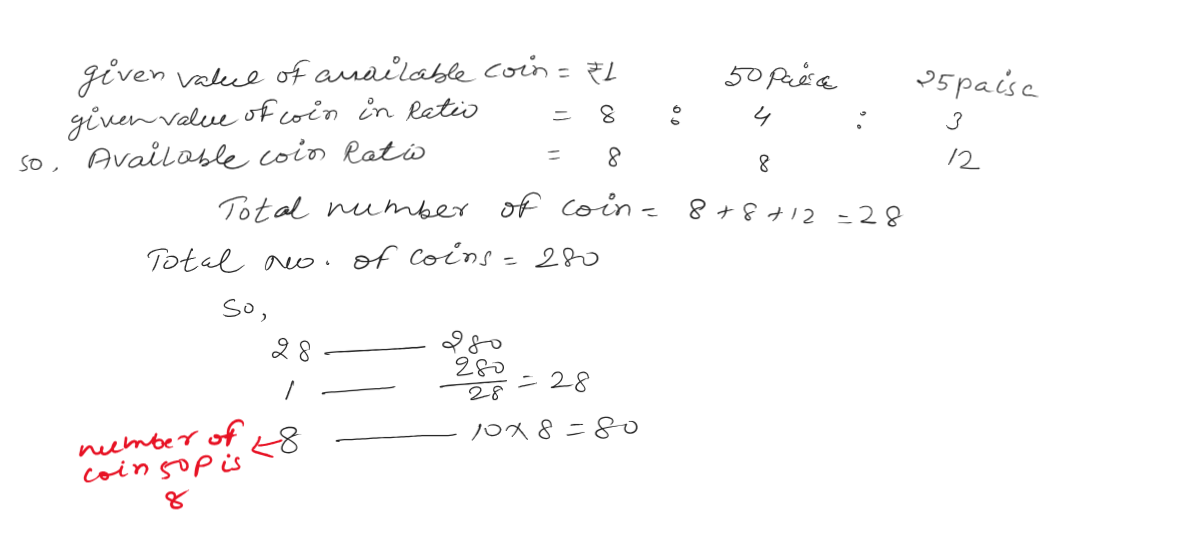 given value of available coin = ₹1 50 paisa 25 paisa
given value of coin in Ratio = 8 : 4 : 3
so, Available coin Ratio = 8 8 12
Total number of coin = 8 + 8 + 12 = 28
Total no. of coins = 280
So,
28 — 280
1 — 280/28 = 28
8 — 10 x 8 = 80
number of ← 
coin 50p is
8